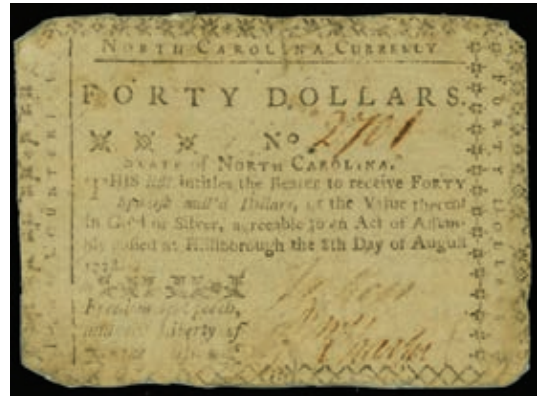 NORTH CAROLINA CURRENCY
FORTY DOLLARS.
No 2701
STATE of NORTH CAROLINA.
THIS Bill intitles the Bearer to receive FORTY
Spanish mill'd Dollars, or the Value thereof
in Gold or Silver, agreeable to an Act of Assem-
bly passed at Hillsborough the 8th Day of August
1778.
Freedom of Speech,
and Liberty of
FORTY DOLLARS